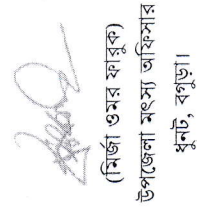 (মির্জা ওমর ফারুক)
উপজেলা মৎস্য অফিসার
ধুনট, বগুড়া।